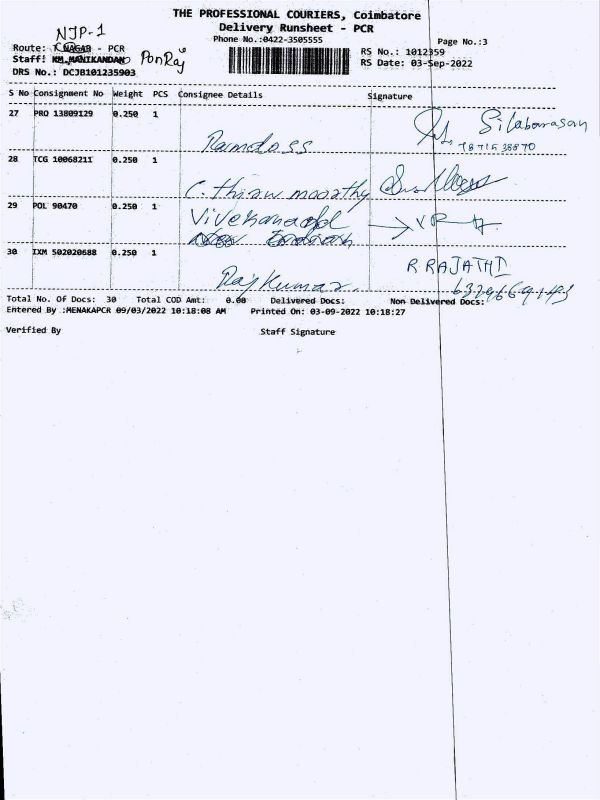 THE PROFESSIONAL COURIERS, Coimbatore
Delivery Runsheet - PCR
Phone No.:0422-3505555
Page No.:3
NJP-1
Route: T.NAGAR - PCR
Staff: KM.MANIKANDAN PonRaj
DRS No.: DCJB101235903
RS No.: 1012359
RS Date: 03-Sep-2022
S No Consignment No Weight PCS Consignee Details Signature
27 PRO 13809129 0.250 1
Ramdoss
Silabarasan
28 TCG 10068211 0.250 1
C. thirumoorthy
29 POL 90470 0.250 1
Vivekanadd
VR
30 IXM 502020688 0.250 1
Raj Kumar.
R RAJATHI
Total No. Of Docs: 30 Total COD Amt: 0.00 Delivered Docs: Non Delivered Docs:
Entered By :MENAKAPCR 09/03/2022 10:18:08 AM Printed On: 03-09-2022 10:18:27
Verified By Staff Signature